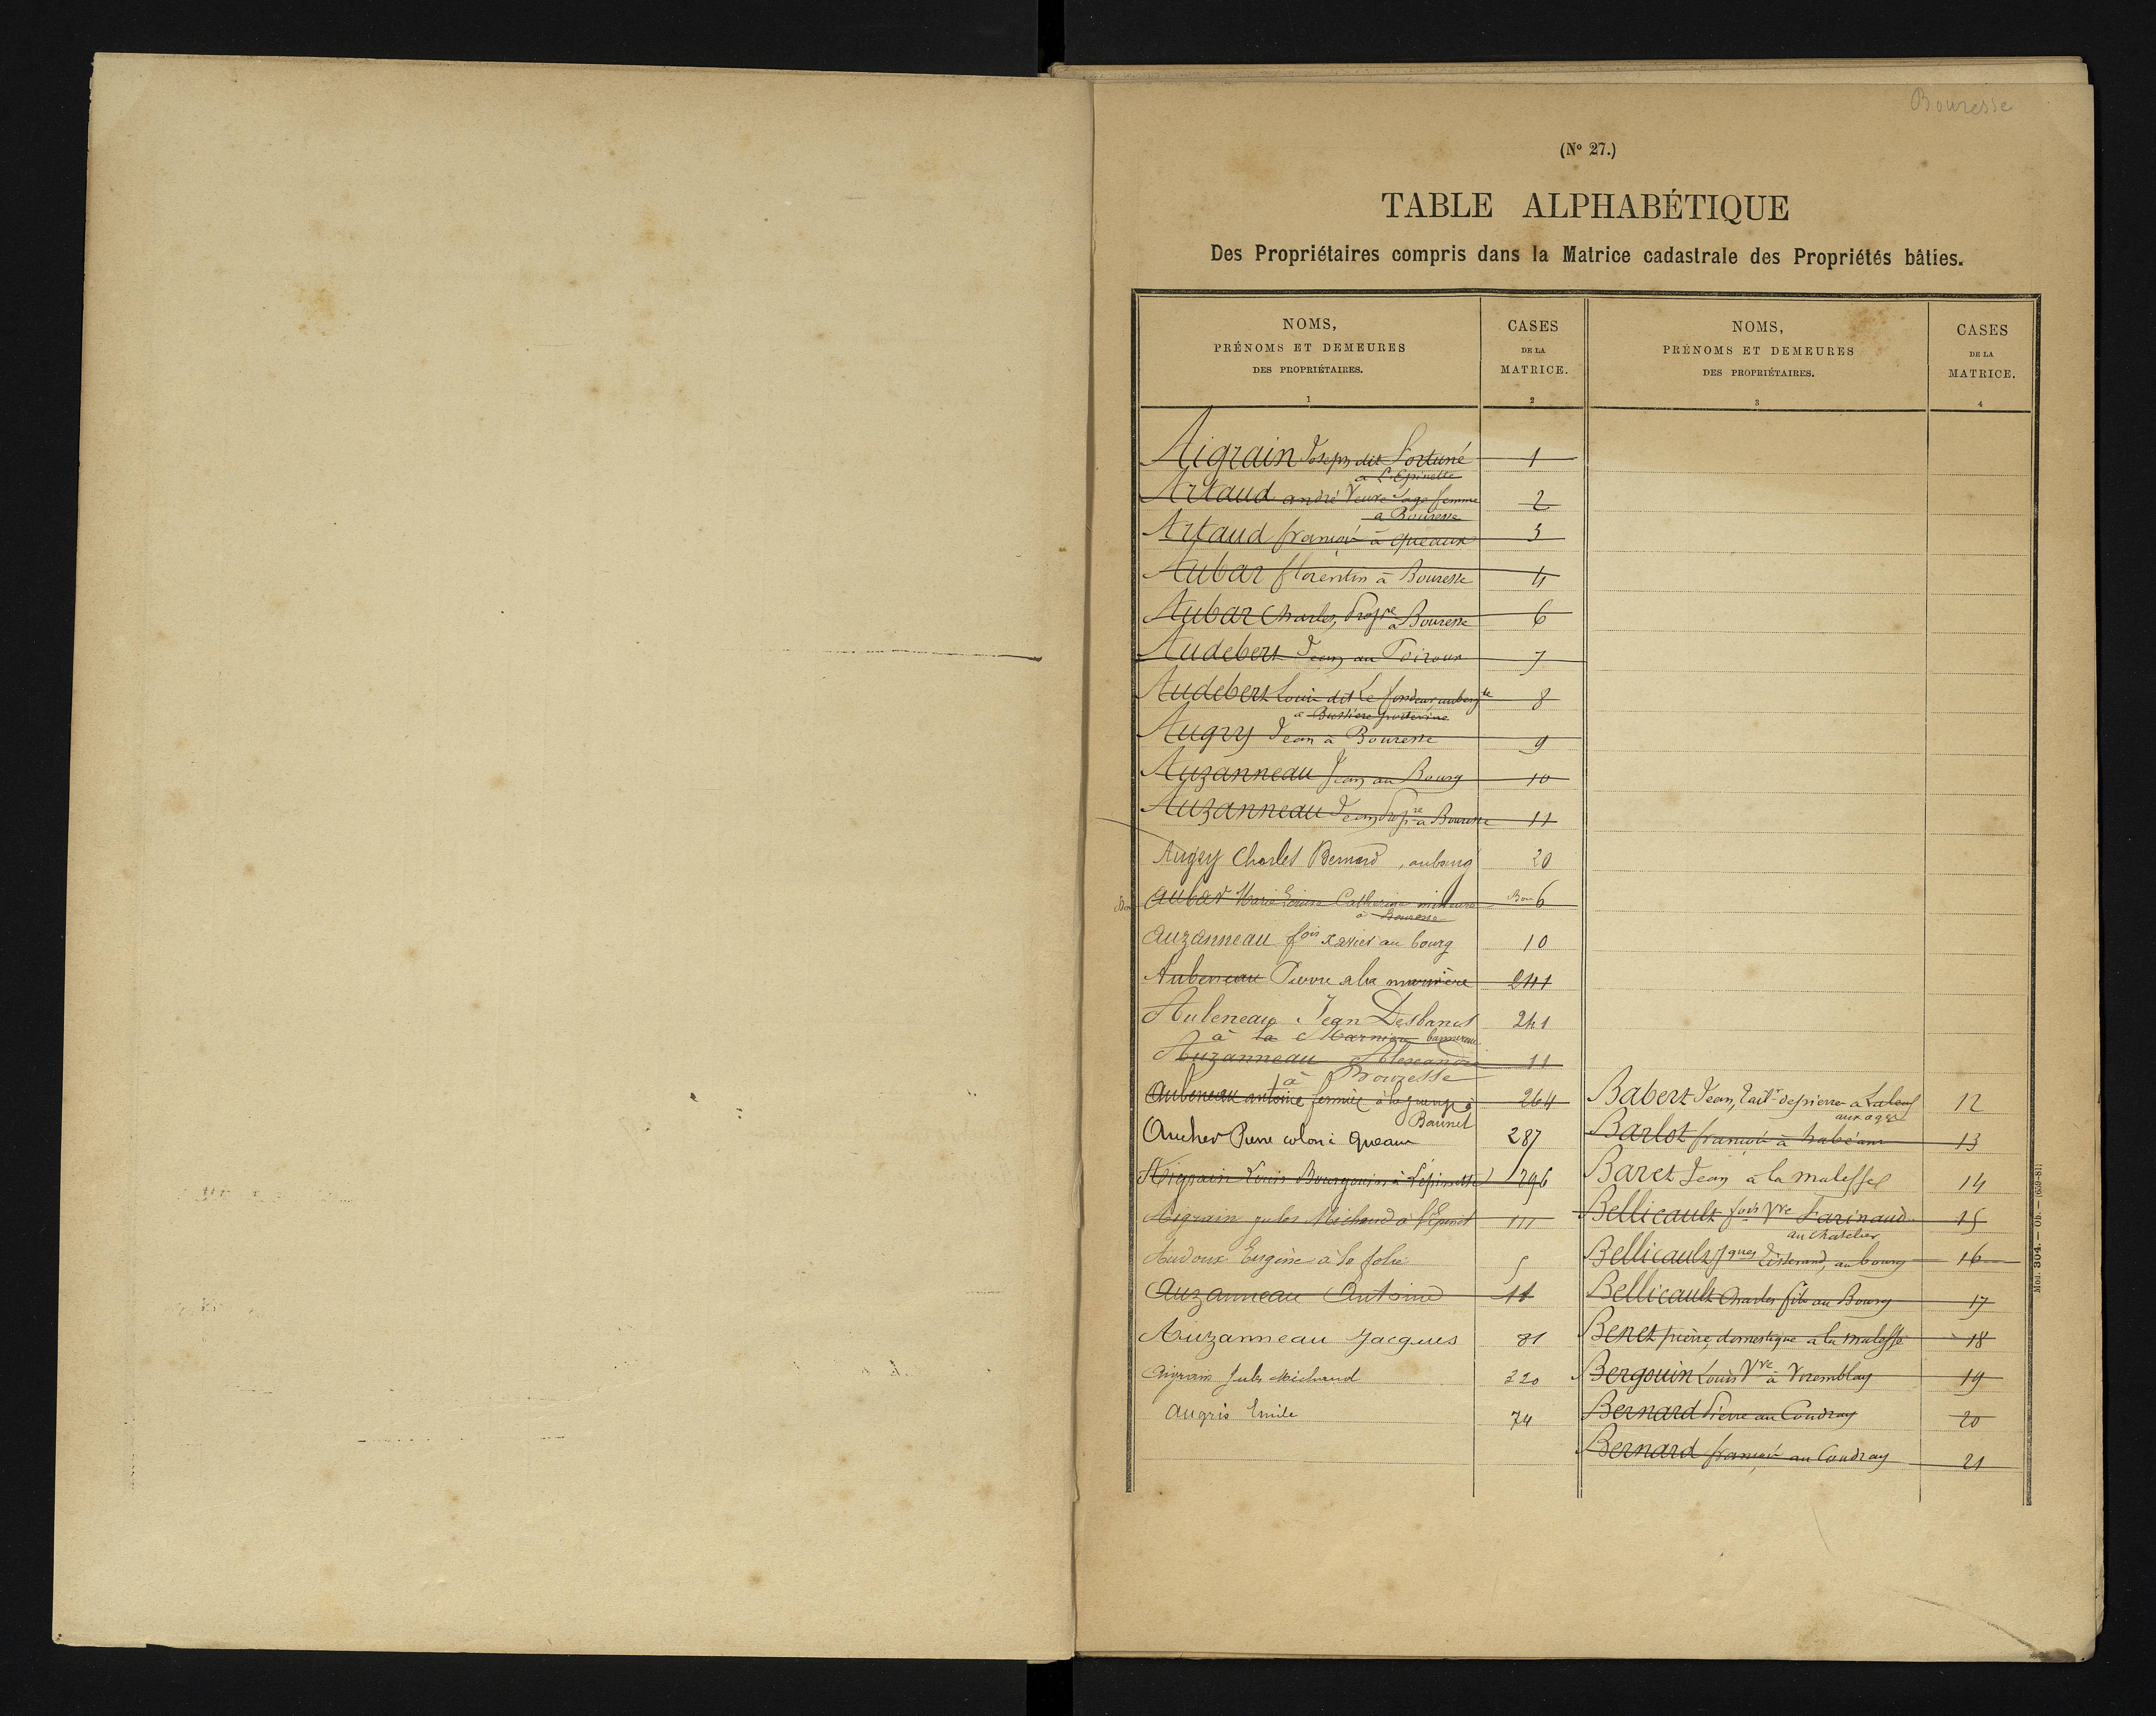 Bouresse
(Nº 27.)
TABLE ALPHABÉTIQUE
Des Propriétaires compris dans la Matrice cadastrale des Propriétés bâties.
NOMS,
PRÉNOMS ET DEMEURES
DES PROPRIÉTAIRES.
1
CASES
DE LA
MATRICE.
2
Aigrain Joseph dit Fortuné 1
a L'Epinette
Artaud andré Veuve Sage femme 2
a Bouresse
Artaud françois à queaux 3
Aubar florentin à Bouresse 4
Aubar Charles, Propre a Bouresse 6
Audebert Jean au Poiroux 7
Audebert Louis dit Le fondeur, aubergte 8
a Bussière poitevine
Augry Jean à Bouresse 9
Auzanneau Jean au Bourg 10
Auzanneau Jean Propre a Bouresse 11
Augry Charles Bernard, au bourg 20
Aubar Marie Louise Catherine mineure 6
à Bouresse
Auzanneau fois Xavier au bourg 10
Aubeneau Pierre a la marnière 241
Aubeneau Jean Desbancs 241
à la Marnière
Auzanneau Alexandre 11
à Bouresse
Aubeneau antoine fermier à la grange à 264
Aucher Pierre colon à Queaux 287
Aigrain Louis Bourgouin à l'épinette 296
Aigrain Jules Michaud à l'Epinet 111
Audoux Eugène à la folie 5
Auzanneau Antoine 11
Auzanneau Jacques 81
Aigrain Jules Michaud 220
Augris Emile 74
NOMS,
PRÉNOMS ET DEMEURES
DES PROPRIÉTAIRES.
3
CASES
DE LA
MATRICE.
4
Babert Jean, tailr de pierre a Laleuf 12
aux ages
Barlot françois à 13
Baret Jean à la malesse 14
Bellicault fois Vve Farinaud 15
au Chatelier
Bellicault Jques Tisserand, au bourg 16
Bellicault Charles fils au Bourg 17
Benet pierre, domestique a la malesse 18
Bergouin Louis Vve à Veremblay 19
Bernard Pierre au Coudray 20
Bernard françois au Coudray 21
Mod. 304. — Ob. — (659-81)